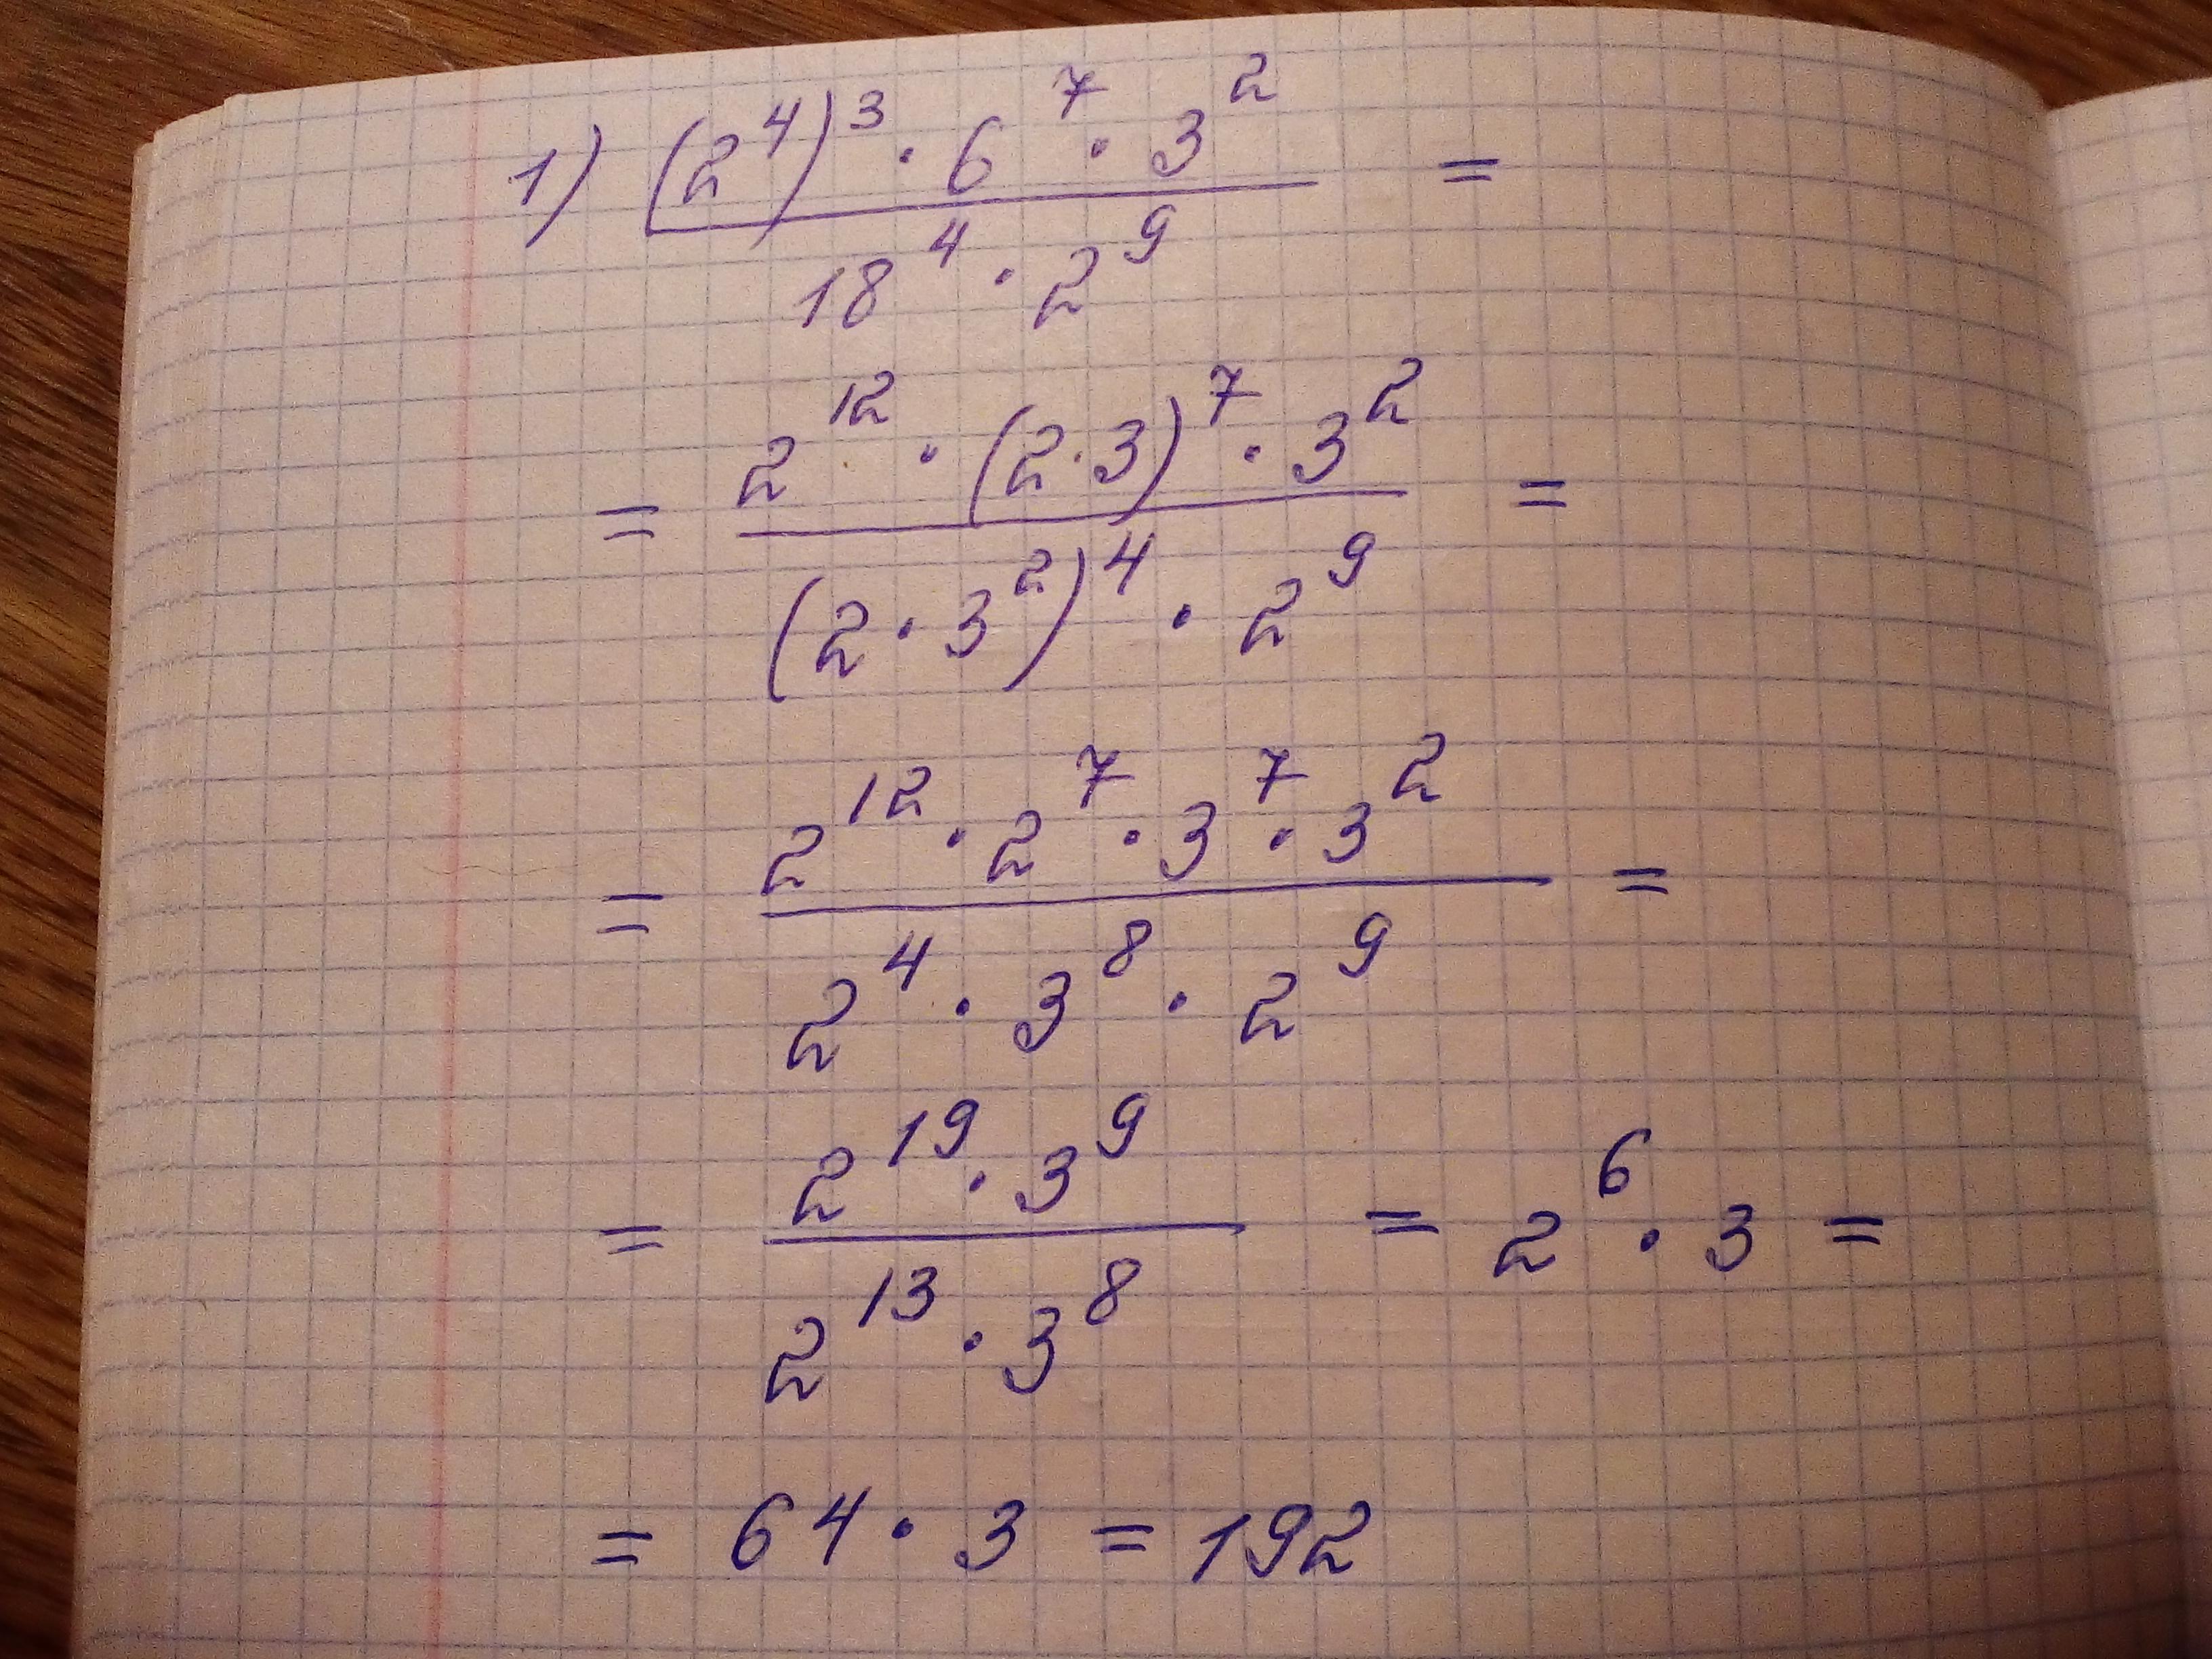 1) (2⁴)³ · 6⁷ · 3² =
18⁴ · 2⁹
= 2¹² · (2·3)⁷ · 3² =
(2 · 3²)⁴ · 2⁹
= 2¹² · 2⁷ · 3⁷ · 3² =
2⁴ · 3⁸ · 2⁹
= 2¹⁹ · 3⁹ = 2⁶ · 3 =
2¹³ · 3⁸
= 64 · 3 = 192